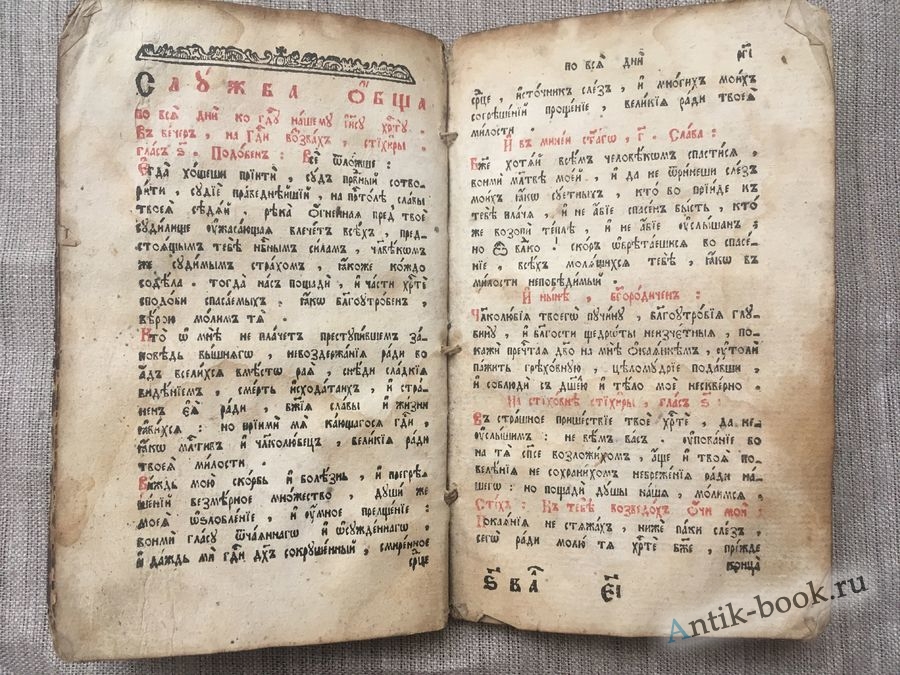 Слꙋ́жба ѻ҆́бща
по всѧ̑ дни̑ ко гдⷭ҇ꙋ на́шемꙋ і҆и҃сꙋ хрⷭ҇тꙋ̀.
Въ ве́черъ, на гдⷭ҇и возва́хъ, стїхи̑ры.
гла́съ ѕ҃. Подо́бенъ: Всѐ ѿло́жше:
Е҆гда̀ хо́щеши прїитѝ, сꙋ́дъ пра́вⷣный сотво-
ри́ти, сꙋдїѐ пра́веднѣйшїй, на прⷭ҇то́лѣ сла́вы
твоеѧ̀ сѣдѧ́й, рѣка̀ ѻ҆́гненнаѧ пред̾ твоѐ
сꙋди́лище ᲂу҆жаса́ющаѧ влече́тъ всѣ́хъ, пред-
стоѧ́щымъ тебѣ̀ нбⷭ҇нымъ си́ламъ, чл҃вѣ́кѡмъ
же сꙋди́мымъ стра́хомъ, ꙗ҆́коже ко́ждо
содѣ́ла. тогда̀ на́съ пощадѝ, и҆ ча́сти хрⷭ҇тѐ
сподо́би спаса́емыхъ. ꙗ҆́кѡ бл҃гоꙋтро́бенъ,
вѣ́рою мо́лим тѧ̀.
Кто̀ ѡ҆ мнѣ̀ не пла́четъ престꙋ́пившемъ за́-
повѣдь вы́шнѧгѡ, невоздержа́нїѧ ра́ди во
а҆́дъ всели́хсѧ вмѣ́стѡ раѧ̀, снѣ́ди сла́дкїѧ
ви́дѣнїемъ, сме́рть и҆схода́таихъ, и҆ стра́-
ненъ є҆ѧ̀ ра́ди, бж҃їѧ сла́вы и҆ жи́зни
ꙗ҆ви́хсѧ: но прїими́ мѧ ка́ющагосѧ гдⷭ҇и,
ꙗ҆́кѡ млⷭ҇тивъ и҆ чл҃колю́бецъ, вели́кїѧ ра́ди
твоеѧ̀ ми́лости.
Ви́ждь мою̀ ско́рбь и҆ болѣ́знь, и҆ прегрѣ-
ше́нїй безмѣ́рное мно́жество, дꙋши́ же
моеѧ̀ ѡ҆ѕлобле́нїе, и҆ ᲂу҆́мное прельще́нїе:
вонмѝ гла́сꙋ ѿча́ѧннагѡ и҆ ѡ҆сꙋжде́ннагѡ,
и҆ да́ждь мѝ гдⷭ҇и дх҃ъ сокрꙋше́нный, смире́нное
срⷣце
по всѧ̑ дни̑ рг҃і
срⷣце, и҆сто́чник сле́зъ, и҆ мно́гихъ мои́хъ
согрѣше́нїй проще́нїе, вели́кїѧ ра́ди твоеѧ̀
ми́лости.
И҆ въ мине́и ст҃а́гѡ, г҃. Сла́ва:
Бж҃е хотѧ́й всѣ́мъ человѣ́кѡмъ спасти́сѧ,
вонмѝ мл҃твѣ мое́й, и҆ да не ѿри́неши сле́зъ
мои́хъ ꙗ҆́кѡ сꙋ́етныхъ, кто̀ бо прїи́де къ
тебѣ̀ пла́чѧ, и҆ не а҆́бїе спасе́нъ бы́сть, кто̀
же возопѝ те́плѣ, и҆ не а҆́бїе ᲂу҆слы́шанъ:
но ѽ влⷣко! ско́ръ ѡ҆брѣта́ешисѧ во спасе́-
нїе, всѣ́хъ молѧ́щихсѧ тебѣ̀, ꙗ҆́кѡ въ
ми́лости непобѣди́мый.
И҆ ны́нѣ, бг҃оро́диченъ:
Чл҃колю́бїѧ твоегѡ̀ пꙋчи́нꙋ, бл҃гоꙋтро́бїѧ глꙋ-
бинꙋ̀, и҆ бл҃гости щедрѡ́ты неизче́тныѧ, по-
кажѝ пречⷭ҇таѧ дв҃о на мнѣ̀ ѻ҆каѧ́ннѣмъ, ᲂу҆толѝ
па́жить грѣхо́внꙋю, цѣломꙋ́дрїе пода́вши,
и҆ соблюдѝ с̾ дш҃е́ю и҆ тѣ́ло моѐ нескве́рно.
На стїхо́внѣ стїхи̑ры, гла́съ ѕ҃:
Въ стра́шное прише́ствїе твоѐ хрⷭ҇тѐ, да не
ᲂу҆слы́шимъ: не вѣ́мъ ва́съ. ᲂу҆пова́нїе бо
на тѧ̀ сп҃се возложи́хомъ, а҆́ще и҆ твоѧ̑ по-
велѣ̑нїѧ не сохрани́хомъ небреже́нїѧ ра́ди на́-
шегѡ: но пощадѝ дꙋ́шы на́шѧ, мо́лимсѧ,
Сті́хъ: Къ тебѣ̀ возведо́хъ ѻ҆́чи моѝ:
Покаѧ́нїѧ не стѧжа́хъ, ниже́ паки сле́зъ,
сегѡ̀ ра́ди молю́ тѧ хрⷭ҇тѐ бж҃е, пре́жде
конца̀
Ѕ҃ в л҃ є҃і
Antik-book.ru